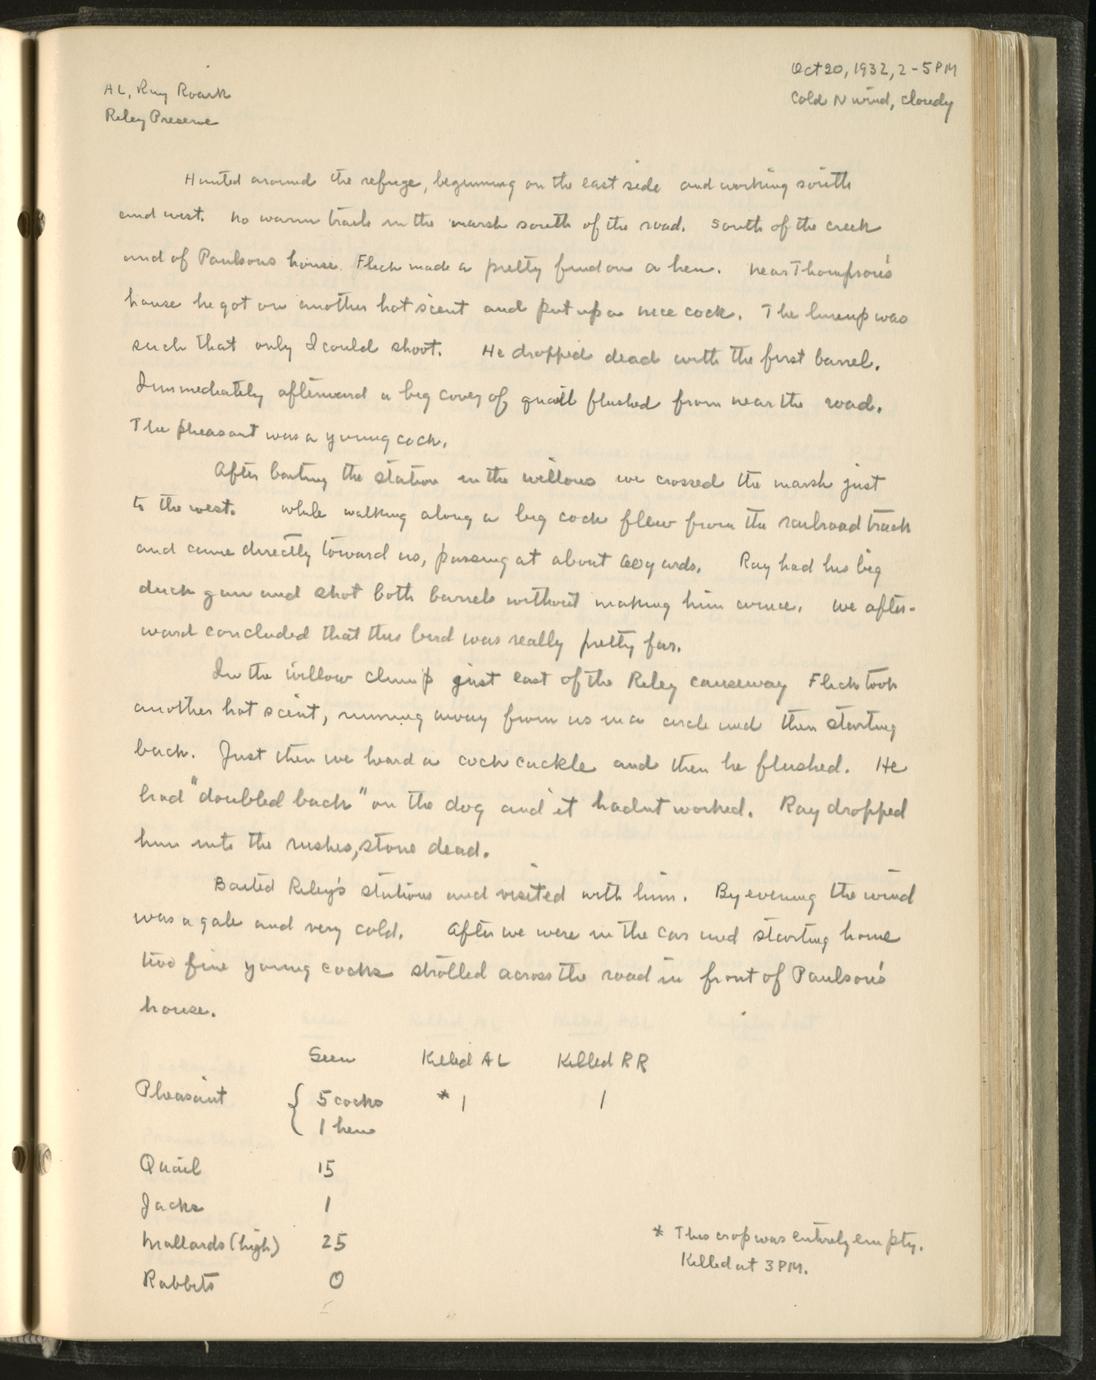 AL, Ray Roark
Riley Preserve
Oct 20, 1932, 2-5 PM
Cold N wind, cloudy
Hunted around the refuge, beginning on the east side and working south
and west. No warm trails in the marsh south of the road. South of the creek
and of Paulsons house Flick made a pretty find on a hen. Near Thompson's
house he got on another hot scent and put up a nice cock. The lineup was
such that only I could shoot. He dropped dead with the first barrel.
Immediately afterward a big covey of quail flushed from near the road.
The pheasant was a young cock.
After baiting the station in the willows we crossed the marsh just
to the west. While walking along a big cock flew from the railroad track
and came directly toward us, passing at about 60 yards. Ray had his big
duck gun and shot both barrels without making him wince. We after-
ward concluded that this bird was really pretty far.
In the willow clump just east of the Riley causeway Flick took
another hot scent, running away from us in a circle and then starting
back. Just then we heard a cock cackle and then he flushed. He
had "doubled back" on the dog and it hadnt worked. Ray dropped
him into the rushes, stone dead.
Baited Riley's stations and visited with him. By evening the wind
was a gale and very cold. After we were in the car and starting home
two fine young cocks strolled across the road in front of Paulson's
house.
Seen Killed AL Killed RR
Pheasant { 5 cocks * 1 1
1 hen
Quail 15
Jacks 1
Mallards (high) 25
Rabbits 0
* This crop was entirely empty.
Killed at 3 PM.